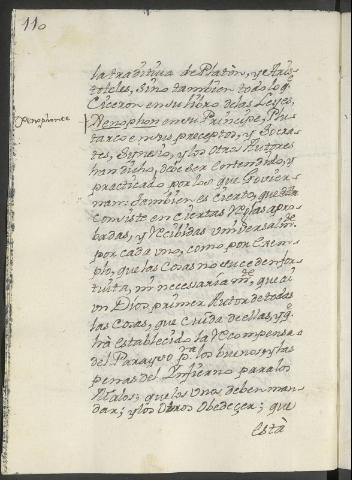 110
la traditiva de Platòn, y Aris-
toteles, Sino tambien todo lo q.e
Ciceron en su libro de las Leyes,
Xenophonte
Xenophon en su Principe, Plu-
tarco en sus preceptos, y Socra-
tes, Synesio, y los otros Autores
han dicho, debe ser entendido, y
practicado por los que Govier-
nan: tambien es cierto, que
consiste en ciertas Reglas apro-
badas, y recibidas universalm.te
por cada uno, como por Exem-
plo, que las Cosas no suceden for-
tuita, ni necessariam.te, que ai
un Dios primer Autor de todas
las Cosas, que cuida de ellas, y q.e
hà establecido la Recompensa
del Parayso p.a los buenos, y las
penas del Infierno para los
Malos; que los unos deben man-
dar; y los Otros Obedeçer; que
està